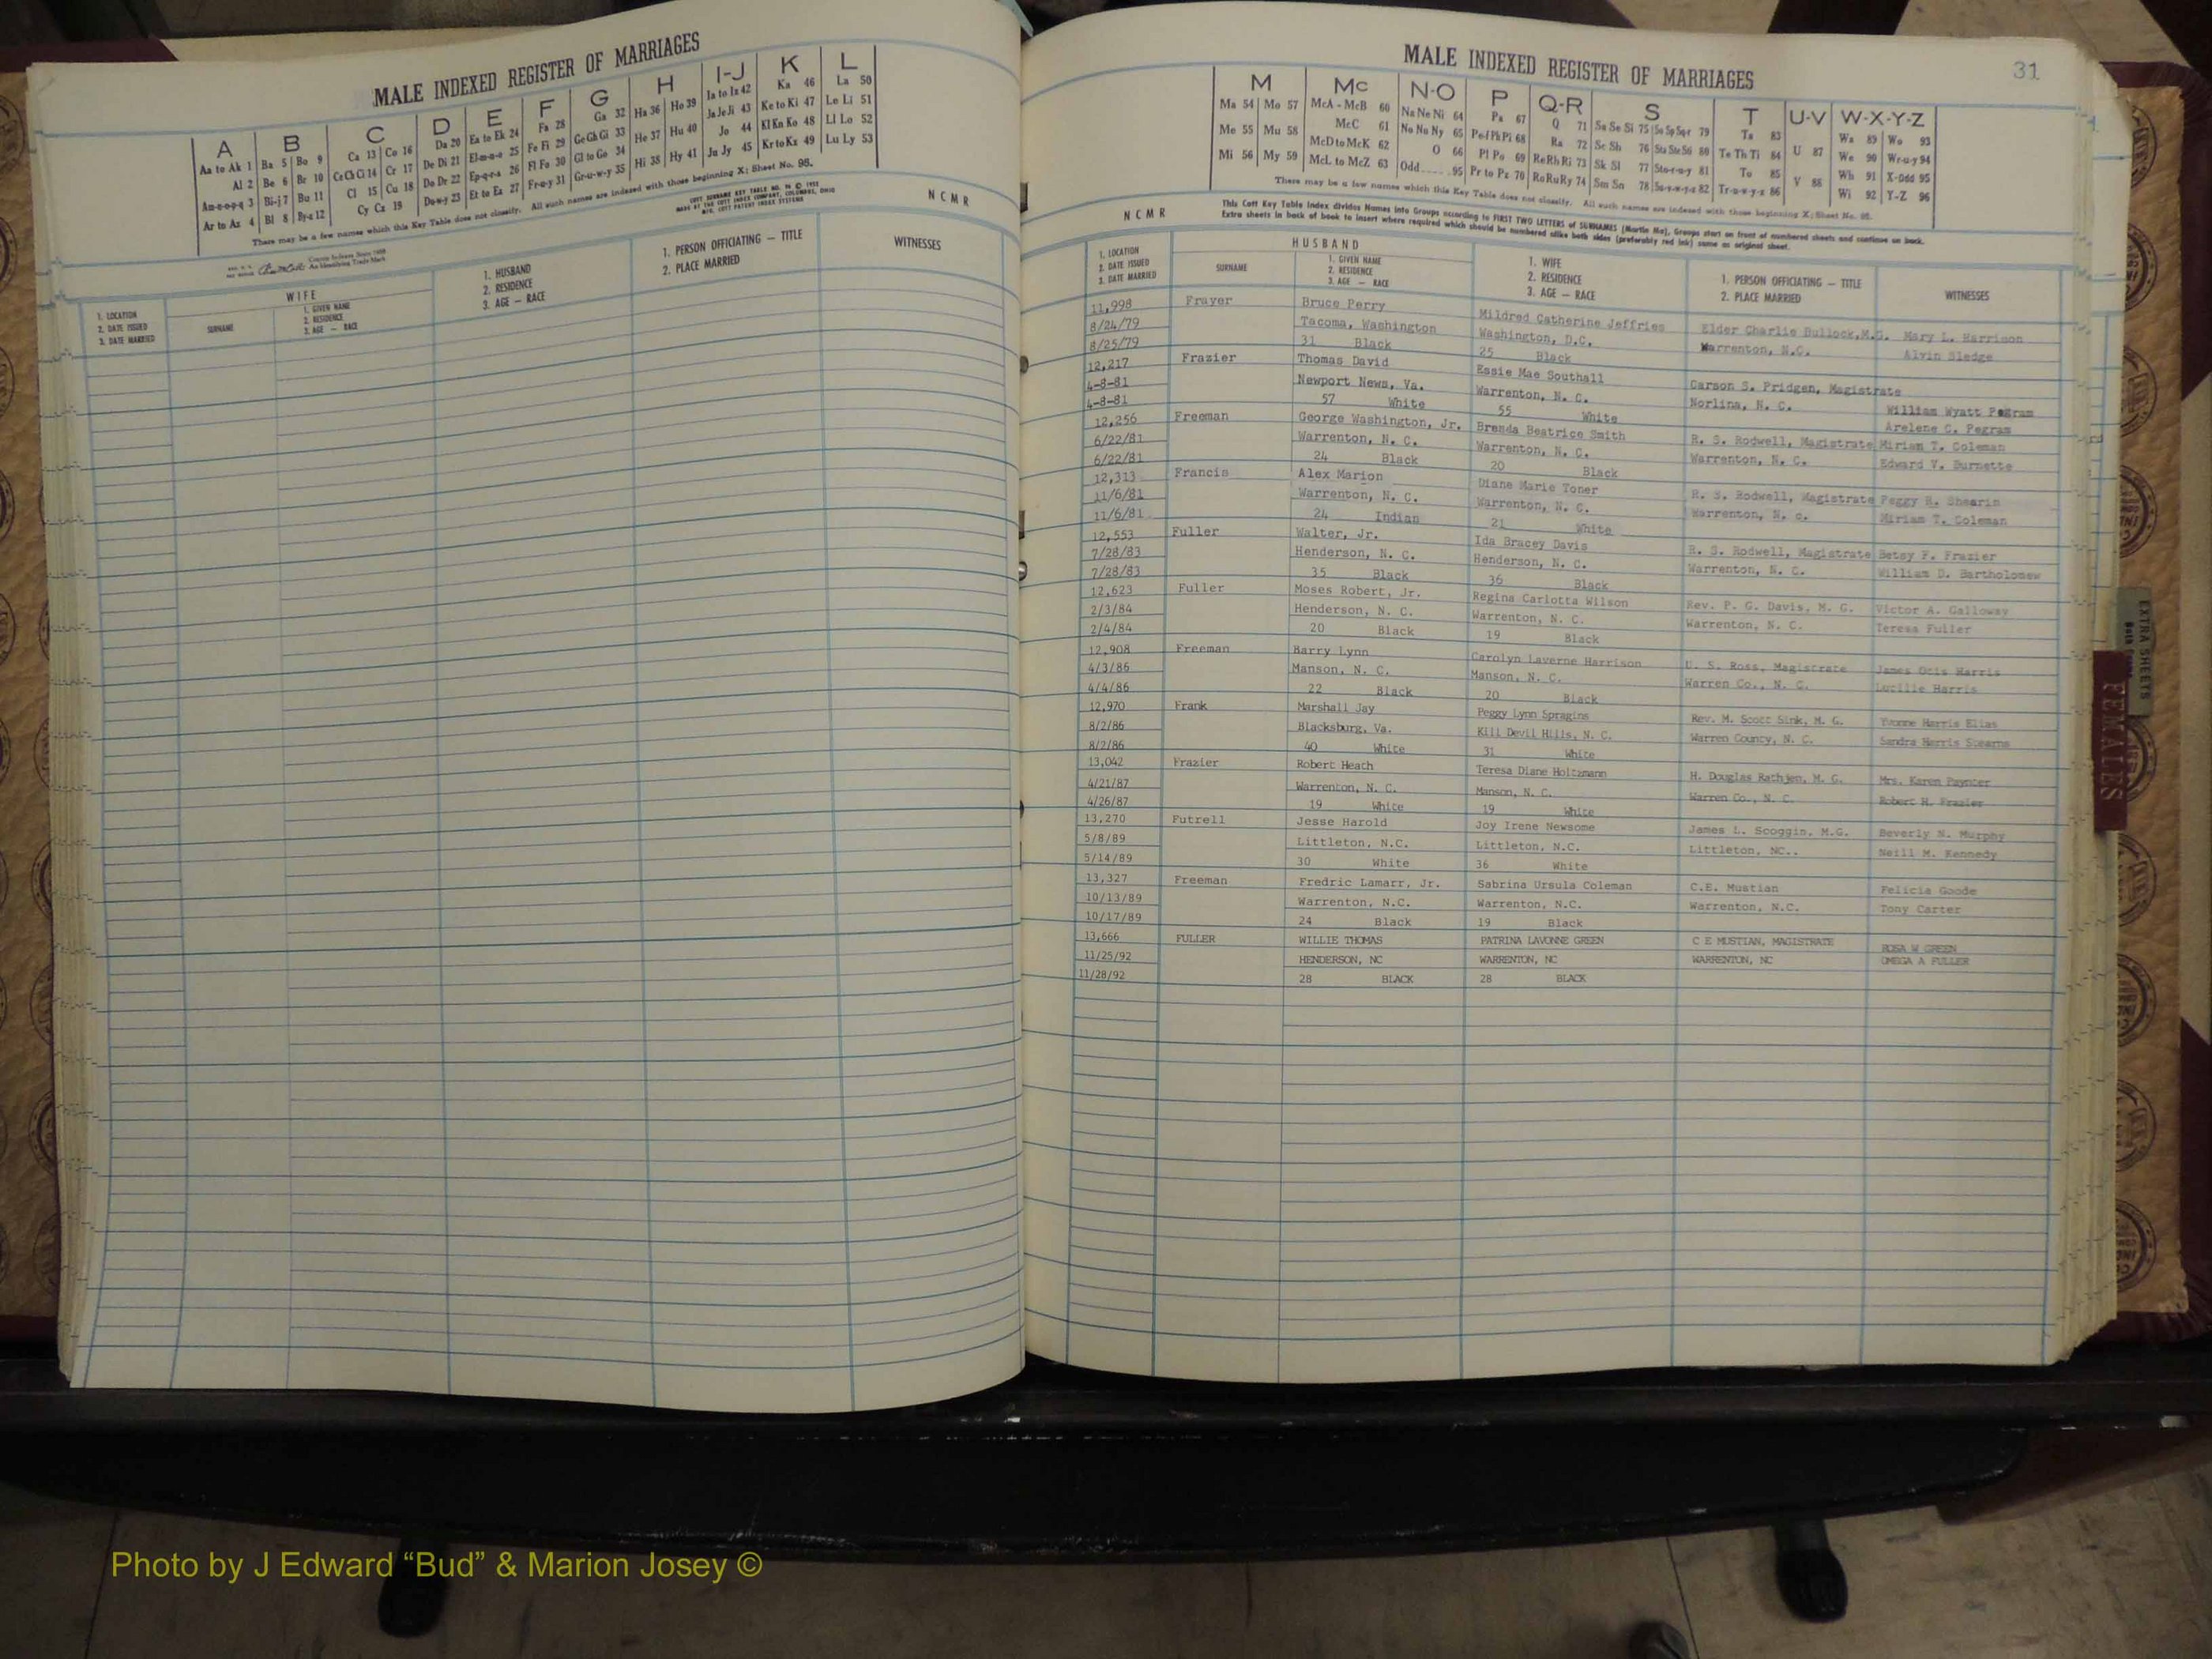 MALE INDEXED REGISTER OF MARRIAGES
A B C D E F G H I-J K L
Aa to Ak 1 Ba 5 Bo 9 Ca 13 Co 16 Da 20 Ea to Ek 24 Fa 28 Ga 32 Ha 36 Ho 39 Ia to Iz 42 Ka 46 La 50
Al 2 Be 6 Br 10 Ce Ch Ci 14 Cr 17 De Di 21 El-m-n-o 25 Fe Fi 29 Ge Gh Gi 33 He 37 Hu 40 Ja Je Ji 43 Ke to Ki 47 Le Li 51
Am-n-o-p-q 3 Bi-j 7 Bu 11 Cl 15 Cu 18 Do Dr 22 Ep-q-r-s 26 Fl Fo 30 Gl to Go 34 Hi 38 Hy 41 Jo 44 Kl Kn Ko 48 Ll Lo 52
Ar to Az 4 Bl 8 By-z 12 Cy Cz 19 Du-w-y 23 Et to Ez 27 Fr-u-y 31 Gr-u-w-y 35 Ju Jy 45 Kr to Kz 49 Lu Ly 53
There may be a few names which this Key Table does not classify. All such names are indexed with those beginning X; Sheet No. 95.
N C M R
1. LOCATION
2. DATE ISSUED
3. DATE MARRIED
WIFE
SURNAME
1. GIVEN NAME
2. RESIDENCE
3. AGE — RACE
1. HUSBAND
2. RESIDENCE
3. AGE — RACE
1. PERSON OFFICIATING — TITLE
2. PLACE MARRIED
WITNESSES
MALE INDEXED REGISTER OF MARRIAGES
31
M Mc N-O P Q-R S T U-V W-X-Y-Z
Ma 54 Mo 57 McA - McB 60 Na Ne Ni 64 Pa 67 Q 71 Sa Se Si 75 So Sp Sq-r 79 Ta 83 Wa 89 Wo 93
Me 55 Mu 58 McC 61 No Nu Ny 65 Pe-f Ph Pi 68 Ra 72 Sc Sh 76 Sta Ste Sti 80 Te Th Ti 84 U 87 We 90 Wr-u-y 94
Mi 56 My 59 McD to McK 62 O 66 Pl Po 69 Re Rh Ri 73 Sk Sl 77 Sto-r-u-y 81 To 85 V 88 Wh 91 X-Odd 95
McL to McZ 63 Odd 95 Pr to Pz 70 Ro Ru Ry 74 Sm Sn 78 Su-v-w-y-z 82 Tr-u-w-y-z 86 Wi 92 Y-Z 96
There may be a few names which this Key Table does not classify. All such names are indexed with those beginning X; Sheet No. 95.
N C M R
This Cott Key Table Index divides Names into Groups according to FIRST TWO LETTERS of SURNAMES (Martin Ma), Groups start on front of numbered sheets and continue on back.
Extra sheets in back of book to insert where required which should be numbered alike both sides (preferably red ink) same as original sheet.
1. LOCATION
2. DATE ISSUED
3. DATE MARRIED
HUSBAND
SURNAME
1. GIVEN NAME
2. RESIDENCE
3. AGE — RACE
1. WIFE
2. RESIDENCE
3. AGE — RACE
1. PERSON OFFICIATING — TITLE
2. PLACE MARRIED
WITNESSES
11,998 Frayer Bruce Perry Mildred Catherine Jeffries Elder Charlie Bullock,M.G. Mary L. Harrison
8/24/79 Tacoma, Washington Washington, D.C. Warrenton, N.C. Alvin Sledge
8/25/79 31 Black 25 Black
12,217 Frazier Thomas David Essie Mae Southall Carson S. Pridgen, Magistrate
4-8-81 Newport News, Va. Warrenton, N. C. Norlina, N. C. William Wyatt Pegram
4-8-81 57 White 55 White Arelene C. Pegram
12,256 Freeman George Washington, Jr. Brenda Beatrice Smith R. S. Rodwell, Magistrate Miriam T. Coleman
6/22/81 Warrenton, N. C. Warrenton, N. C. Warrenton, N. C. Edward V. Burnette
6/22/81 24 Black 20 Black
12,313 Francis Alex Marion Diane Marie Toner R. S. Rodwell, Magistrate Peggy R. Shearin
11/6/81 Warrenton, N. C. Warrenton, N. C. Warrenton, N. c. Miriam T. Coleman
11/6/81 24 Indian 21 White
12,553 Fuller Walter, Jr. Ida Bracey Davis R. S. Rodwell, Magistrate Betsy F. Frazier
7/28/83 Henderson, N. C. Henderson, N. C. Warrenton, N. C. William D. Bartholomew
7/28/83 35 Black 36 Black
12,623 Fuller Moses Robert, Jr. Regina Carlotta Wilson Rev. P. G. Davis, M. G. Victor A. Galloway
2/3/84 Henderson, N. C. Warrenton, N. C. Warrenton, N. C. Teresa Fuller
2/4/84 20 Black 19 Black
12,908 Freeman Barry Lynn Carolyn Laverne Harrison U. S. Ross, Magistrate James Otis Harris
4/3/86 Manson, N. C. Manson, N. C. Warren Co., N. C. Lucille Harris
4/4/86 22 Black 20 Black
12,970 Frank Marshall Jay Peggy Lynn Spragins Rev. M. Scott Sink, M. G. Yvonne Harris Elias
8/2/86 Blacksburg, Va. Kill Devil Hills, N. C. Warren County, N. C. Sandra Harris Stearns
8/2/86 40 White 31 White
13,042 Frazier Robert Heath Teresa Diane Holtzmann H. Douglas Rathjen, M. G. Mrs. Karen Paynter
4/21/87 Warrenton, N. C. Manson, N. C. Warren Co., N. C. Robert H. Frazier
4/26/87 19 White 19 White
13,270 Futrell Jesse Harold Joy Irene Newsome James L. Scoggin, M.G. Beverly N. Murphy
5/8/89 Littleton, N.C. Littleton, N.C. Littleton, NC.. Neill M. Kennedy
5/14/89 30 White 36 White
13,327 Freeman Fredric Lamarr, Jr. Sabrina Ursula Coleman C.E. Mustian Felicia Goode
10/13/89 Warrenton, N.C. Warrenton, N.C. Warrenton, N.C. Tony Carter
10/17/89 24 Black 19 Black
13,666 FULLER WILLIE THOMAS PATRINA LAVONNE GREEN C E MUSTIAN, MAGISTRATE ROSA W GREEN
11/25/92 HENDERSON, NC WARRENTON, NC WARRENTON, NC OMEGA A FULLER
11/28/92 28 BLACK 28 BLACK
EXTRA SHEETS
FEMALES
Photo by J Edward “Bud” & Marion Josey ©